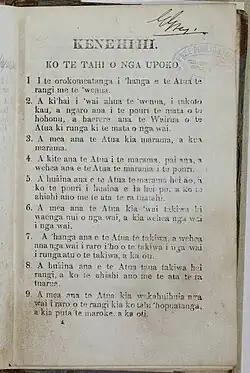 KENEHIHI.
KO TE TAHI O NGA UPOKO.
1 I te orokomeatanga i 'hanga e te Atua te
rangi me te 'wenua.
2. A ki'hai i 'wai ahua te 'wenua, i takoto
kau, a ngaro ana i te pouri te mata o te
hohonu, a haerere ana te Wairua o te
Atua ki runga ki te mata o nga wai.
3. A mea ana te Atua kia marama, a kua
marama.
4. A kite ana te Atua i te marama, pai ana, a
wehea ana e te Atua te marama i te pouri.
5. A huaina ana e te Atua te marama hei ao, a
ko te pouri i huaina e ia hei po, a ko te
ahiahi ano me te ata te ra tuatahi.
6. A mea ana te Atua kia 'wai takiwa ki
waenga nui o nga wai, a kia wehea nga wai
i nga wai.
7. A 'hanga ana e te Atua te takiwa, a wehea
ana nga wai i raro i ho o te takiwa i nga wai
i runga atu o te takiwa, a ka oti.
8. A huaina ana e te Atua taua takiwa hei
rangi, a ko te ahiahi ano me te ata te ra
tuarua.
9. A mea ana te Atua kia wakahuihuia nga
wai i raro i te rangi kia ko tahi 'hopuatanga,
a kia puta te maroke, a ka oti.